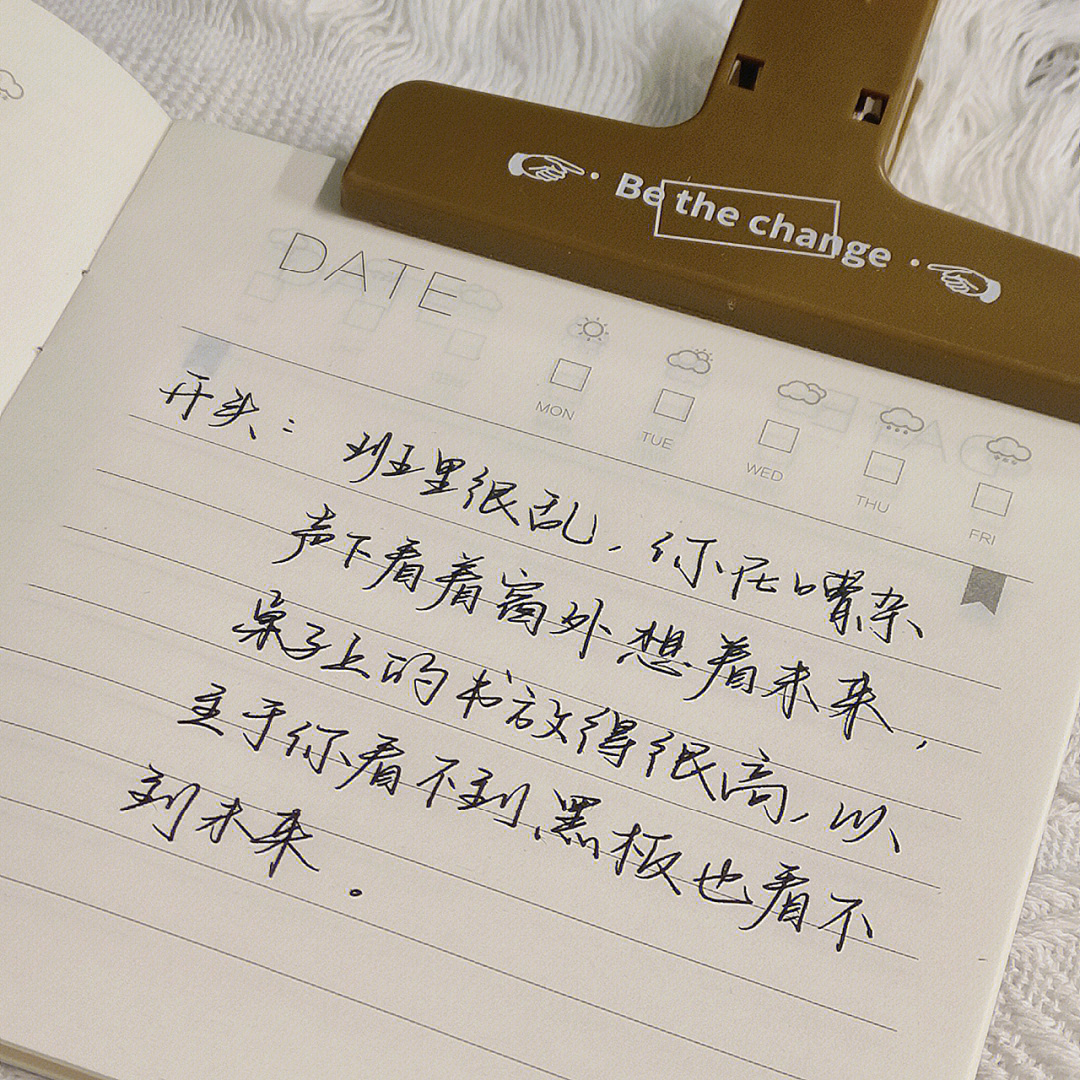 Be the change
DATE
MON TUE WED THU FRI
开头：班里很乱，你在嘈杂
声下看着窗外想着未来，
桌子上的书放得很高，以
至于你看不到黑板也看不
到未来。